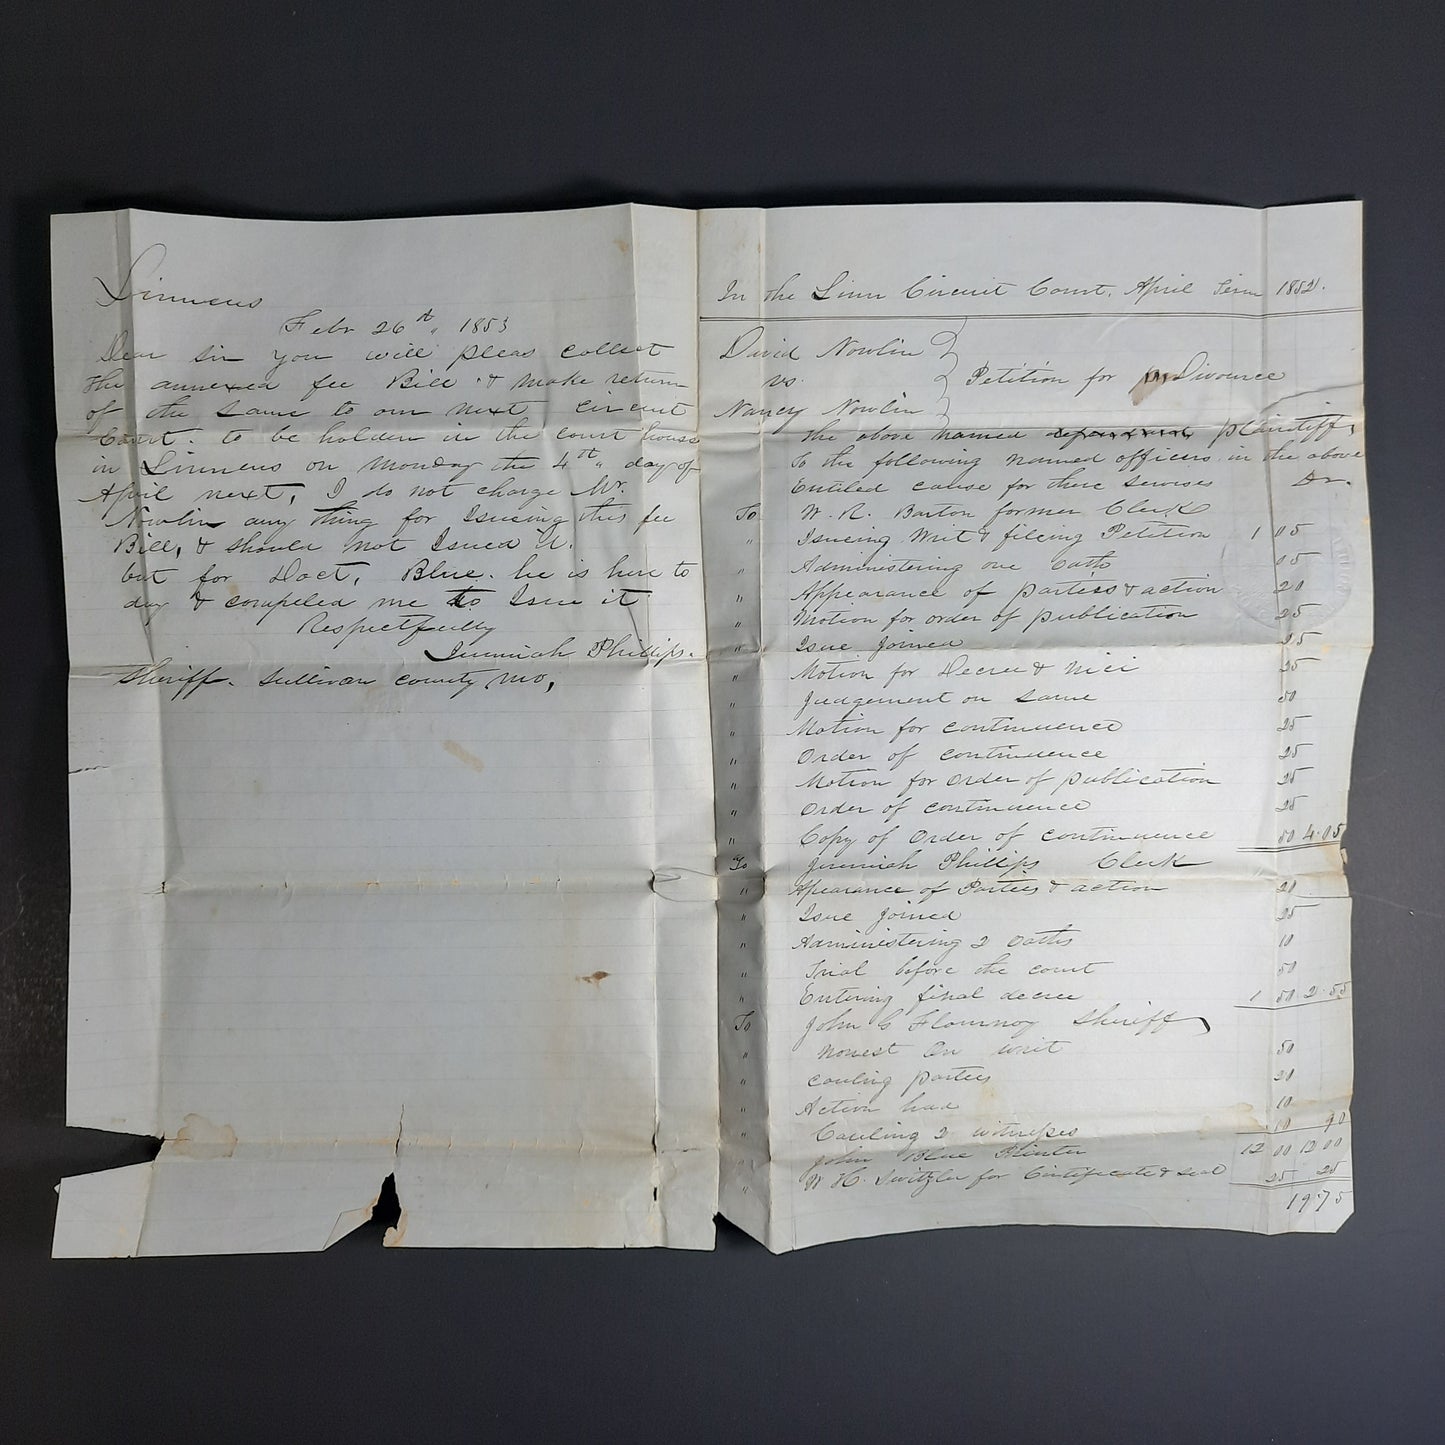 Linneus
Febr 26th, 1853
Dear Sir you will pleas collect
the annexed fee Bill & make return
of the same to our next circuit
Court. to be holden in the court house
in Linneus on Monday the 4th day of
April next, I do not charge Mr.
Nowlin any thing for Issueing this fee
Bill, & should not Issued it.
but for Doct. Blue. he is here to
day & compeled me to Issue it
Respectfully
Jeremiah Phillips.
Sheriff. Sullivan county Mo,
In the Linn Circuit Court, April Term 1852.
David Nowlin
vs.
Petition for Divource
Nancy Nowlin
The above named defendant, plaintiff,
To the following named officers in the above
Entitled cause for there servises Dr.
To W. R. Barton former Clerk
" Issueing Writ & fileing Petition 1 05
" Administering one Oath 05
" Appearance of parties & action 20
" Motion for order of publication 25
" Isue joined 25
" Motion for Decree & Nici 25
" Judgement on same 50
" Motion for continuence 25
" Order of continuence 25
" Motion for order of publication 25
" Order of continuence 25
" Copy of Order of continuence 50 4.05
To Jeremiah Phillips Clerk
" Apearance of Parties & action 20
" Isue joined 25
" Administering 2 oaths 10
" Trial before the court 50
" Entering final decree 1 50 2.55
To John G Flournoy Sheriff
" Nonest on writ 50
" Cauling parties 20
" Action had 10
" Cauling 2 witnesses 10 90
" John Blue Printer 12 00 12 00
" W. H. Switzler for Certificate & seal 25 25
19.75